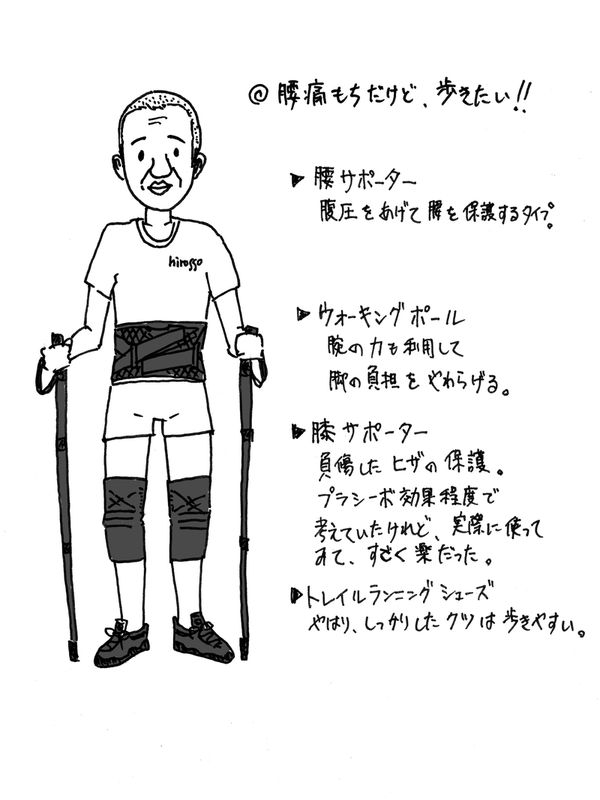 ◎腰痛もちだけど、歩きたい!!
▶腰サポーター
腹圧をあげて腰を保護するタイプ。
hirosso
▶ウォーキングポール
腕の力も利用して
脚の負担をやわらげる。
▶膝サポーター
負傷したヒザの保護。
プラシーボ効果程度で
考えていたけれど、実際に使って
みて、すごく楽だった。
▶トレイルランニングシューズ
やはり、しっかりしたクツは歩きやすい。